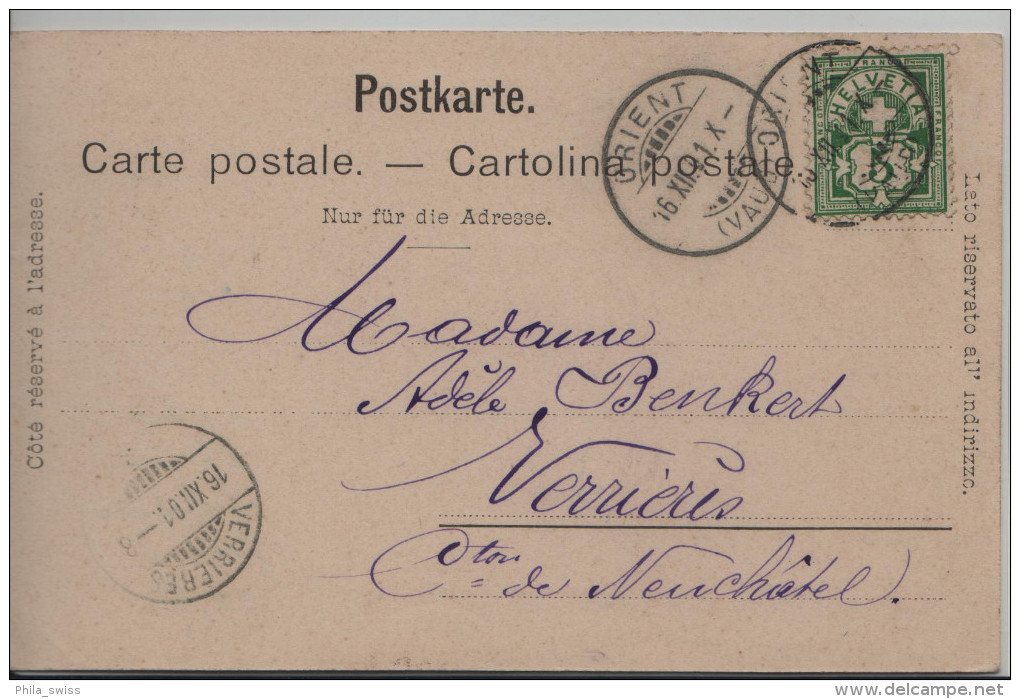 Postkarte.
Carte postale. — Cartolina postale.
Nur für die Adresse.
Côté réservé à l'adresse.
Lato riservato all' indirizzo.
ORIENT
16.XII.01.X-
(VAUD)
ORIENT
FRANCO
HELVETIA
FRANCO
5
Madame
Adèle Benkert
Verrières
Cton de Neuchâtel.
16.XII.01.-8
VERRIERES
Phila_swiss
www.delcampe.net